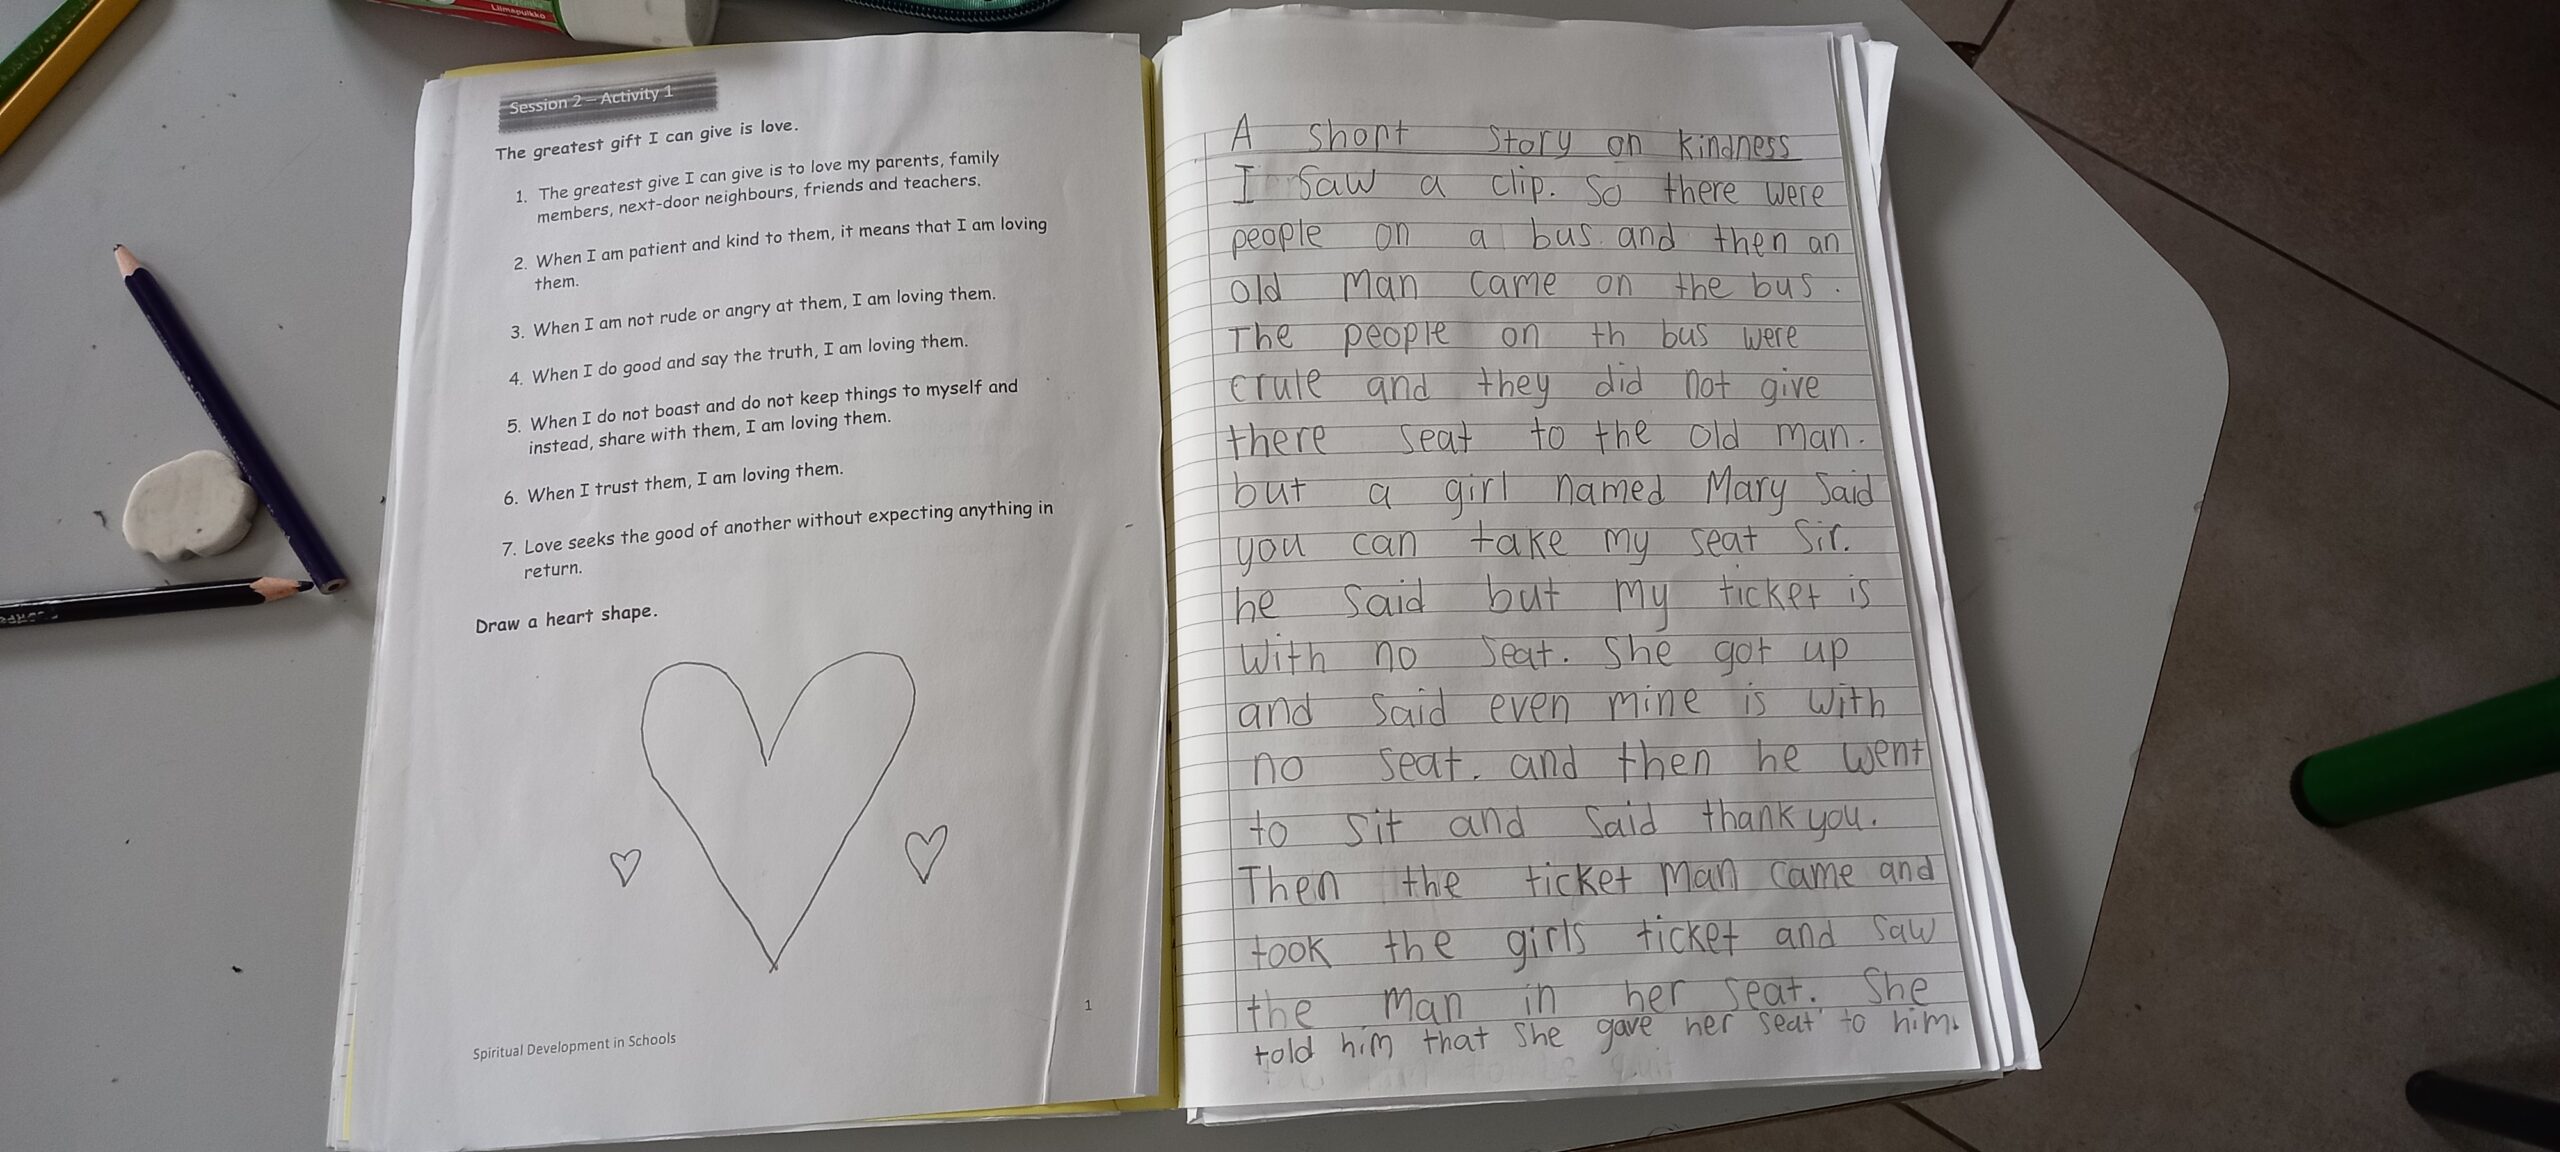 Liimapuikko
Session 2 – Activity 1
The greatest gift I can give is love.
1. The greatest give I can give is to love my parents, family
members, next-door neighbours, friends and teachers.
2. When I am patient and kind to them, it means that I am loving
them.
3. When I am not rude or angry at them, I am loving them.
4. When I do good and say the truth, I am loving them.
5. When I do not boast and do not keep things to myself and
instead, share with them, I am loving them.
6. When I trust them, I am loving them.
7. Love seeks the good of another without expecting anything in
return.
Draw a heart shape.
1
Spiritual Development in Schools
A short story on kindness
I saw a clip. So there were
people on a bus and then an
old man came on the bus.
The people on th bus were
crule and they did not give
there seat to the old man.
but a girl named Mary said
you can take my seat Sir.
he said but my ticket is
with no seat. She got up
and said even mine is with
no seat. and then he went
to sit and said thank you.
Then the ticket man came and
took the girls ticket and saw
the man in her seat. She
told him that she gave her seat to him.